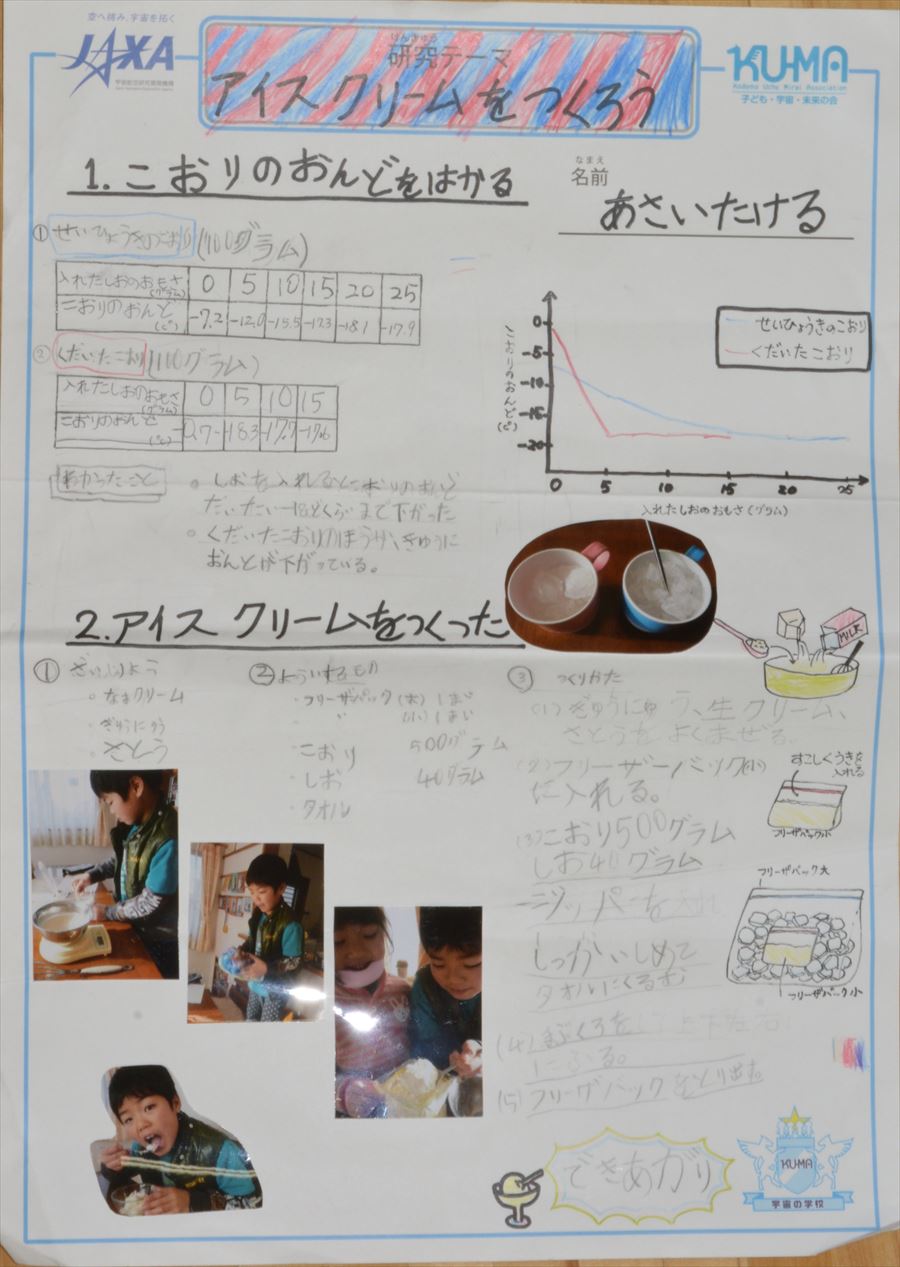 空へ挑み、宇宙を拓く
JAXA
宇宙航空研究開発機構
けんきゅう
研究テーマ
アイスクリームをつくろう
KU-MA
Kodomo Uchu Mirai Association
子ども・宇宙・未来の会
1.こおりのおんどをはかる
なまえ
名前
あさいたける
① せいひょうきのこおり(100グラム)
入れたしおのおもさ(グラム) 0 5 10 15 20 25
こおりのおんど(℃) -7.2 -12.0 -15.5 -17.3 -18.1 -17.9
② くだいたこおり(100グラム)
入れたしおのおもさ(グラム) 0 5 10 15
こおりのおんど(℃) -0.7 -18.3 -17.7 -17.6
わかったこと
しおを入れるとこおりのおんど
だいたい-18どくらいまで下がった
くだいたこおりのほうが、きゅうに
おんどが下がっている。
せいひょうきのこおり
くだいたこおり
こおりのおんど(℃)
0
-5
-10
-15
-20
0 5 10 15 20 25
入れたしおのおもさ(グラム)
2.アイスクリームをつくった
① ざいりょう
・なまクリーム
・ぎゅうにゅう
・さとう
② よういするもの
・フリーザパック(大)1まい
〃 (小)1まい
・こおり 500グラム
・しお 40グラム
・タオル
③ つくりかた
(1)ぎゅうにゅう、生クリーム、
さとうをよくまぜる。
MILK
(2)フリーザーパック(小)
に入れる。
すこしくうきを
入れる
フリーザパック小
(3)こおり500グラム
しお40グラム
ジッパーを入れ
しっかりしめて
タオルにくるむ
フリーザパック大
フリーザパック小
上下左右
にふる。
(5)フリーザパックをとり出す。
できあがり
KU-MA
宇宙の学校